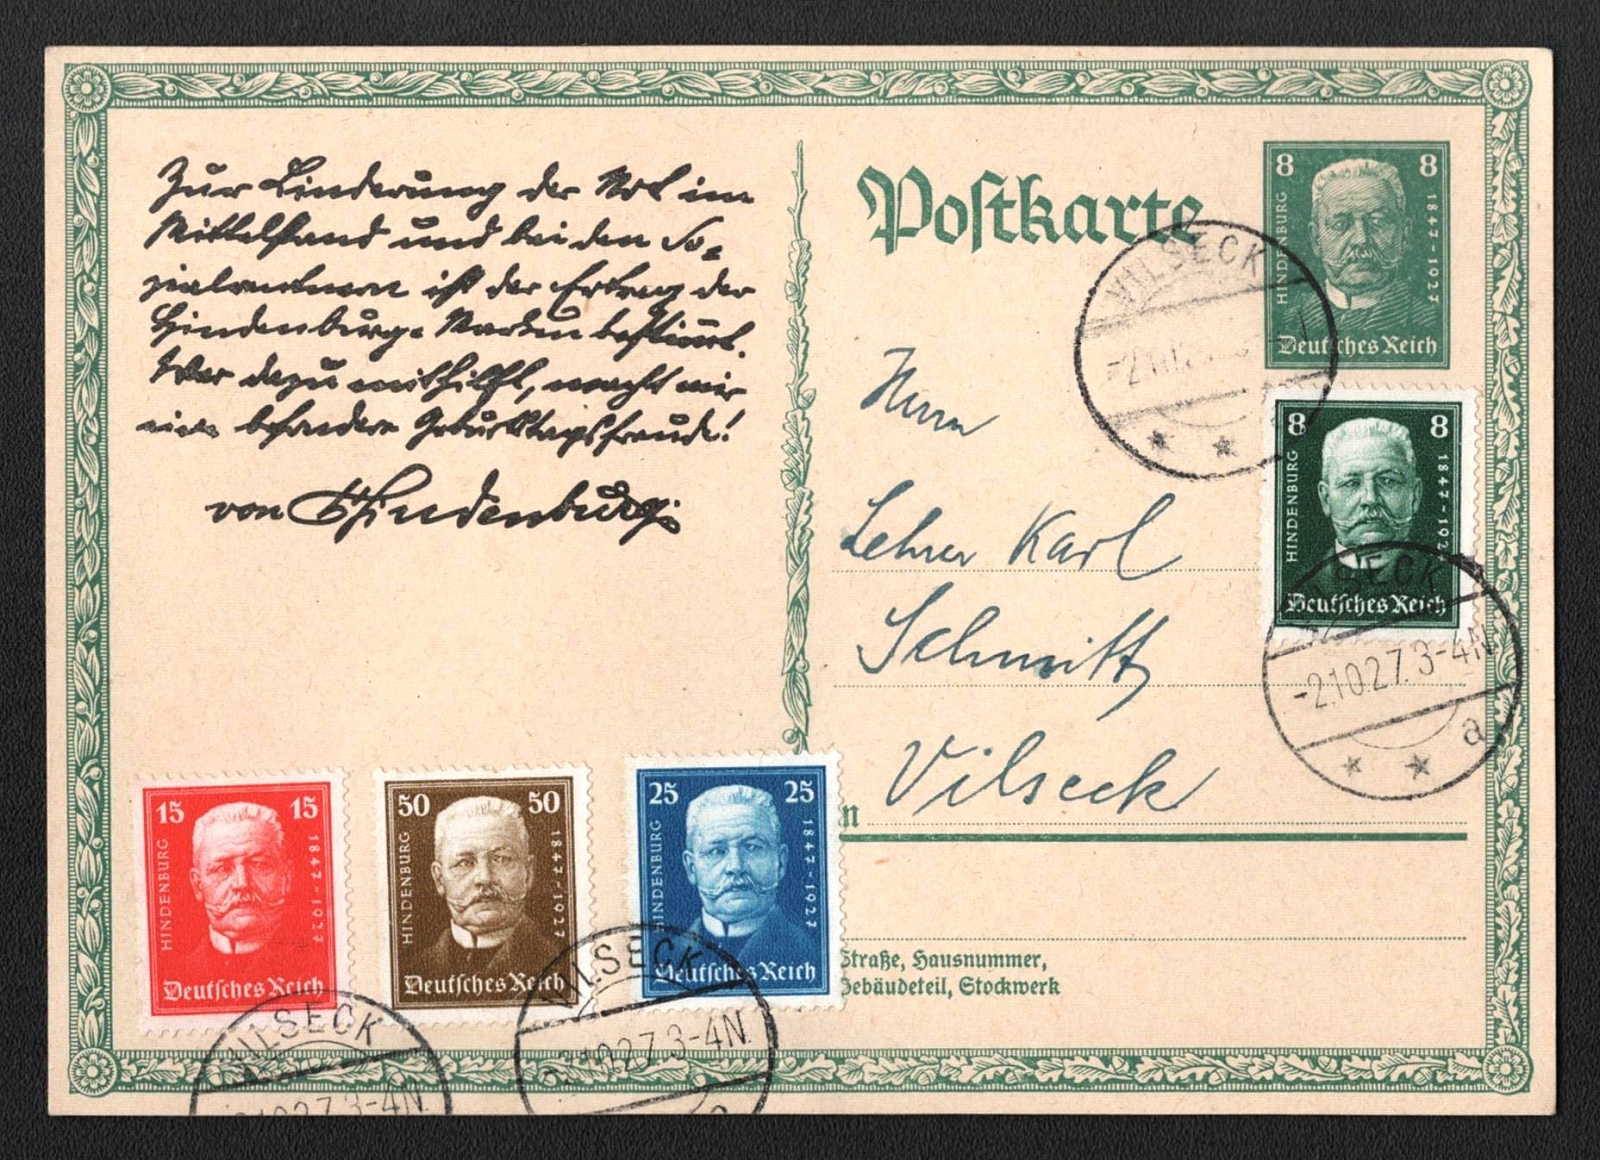 Zur Linderung der Not im
Mittelstand und bei den So-
zialrentnern ist der Ertrag der
Hindenburg-Marken bestimmt.
Wer dazu mithilft, macht mir
eine besondere Geburtstagsfreude!
von Hindenburg.
Postkarte
8 8
HINDENBURG
1847-1927
Deutsches Reich
VILSECK
-2.10.2
Herrn
Lehrer Karl
Schmitt
Vilseck
n
8 8
HINDENBURG
1847-192
Deutsches Reich
SECK
-2.10.27.3-4N.
a
15 15
HINDENBURG
1847-1927
Deutsches Reich
50 50
HINDENBURG
1847-1927
Deutsches Reich
25 25
HINDENBURG
1847-1927
Deutsches Reich
Straße, Hausnummer,
Gebäudeteil, Stockwerk
VILSECK
2.10.27.3-4N.
VILSECK
-2.10.27.3-4N.